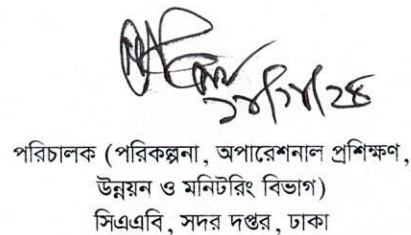 পরিচালক (পরিকল্পনা, অপারেশনাল প্রশিক্ষণ,
উন্নয়ন ও মনিটরিং বিভাগ)
সিএএবি, সদর দপ্তর, ঢাকা